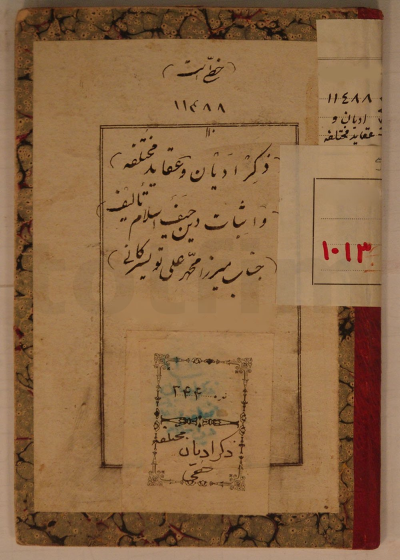 (خطی است)
۱۱۴۸۸
(ذکر ادیان و عقاید مختلفه)
(و اثبات دین حنیف اسلام تألیف)
(جناب میرزا محمد علی تویسرکانی)
۱۱٤۸۸
ادیان و
عقاید مختلفه
۱۰۱۳
۲۴۴
ذکر ادیان مختلفه